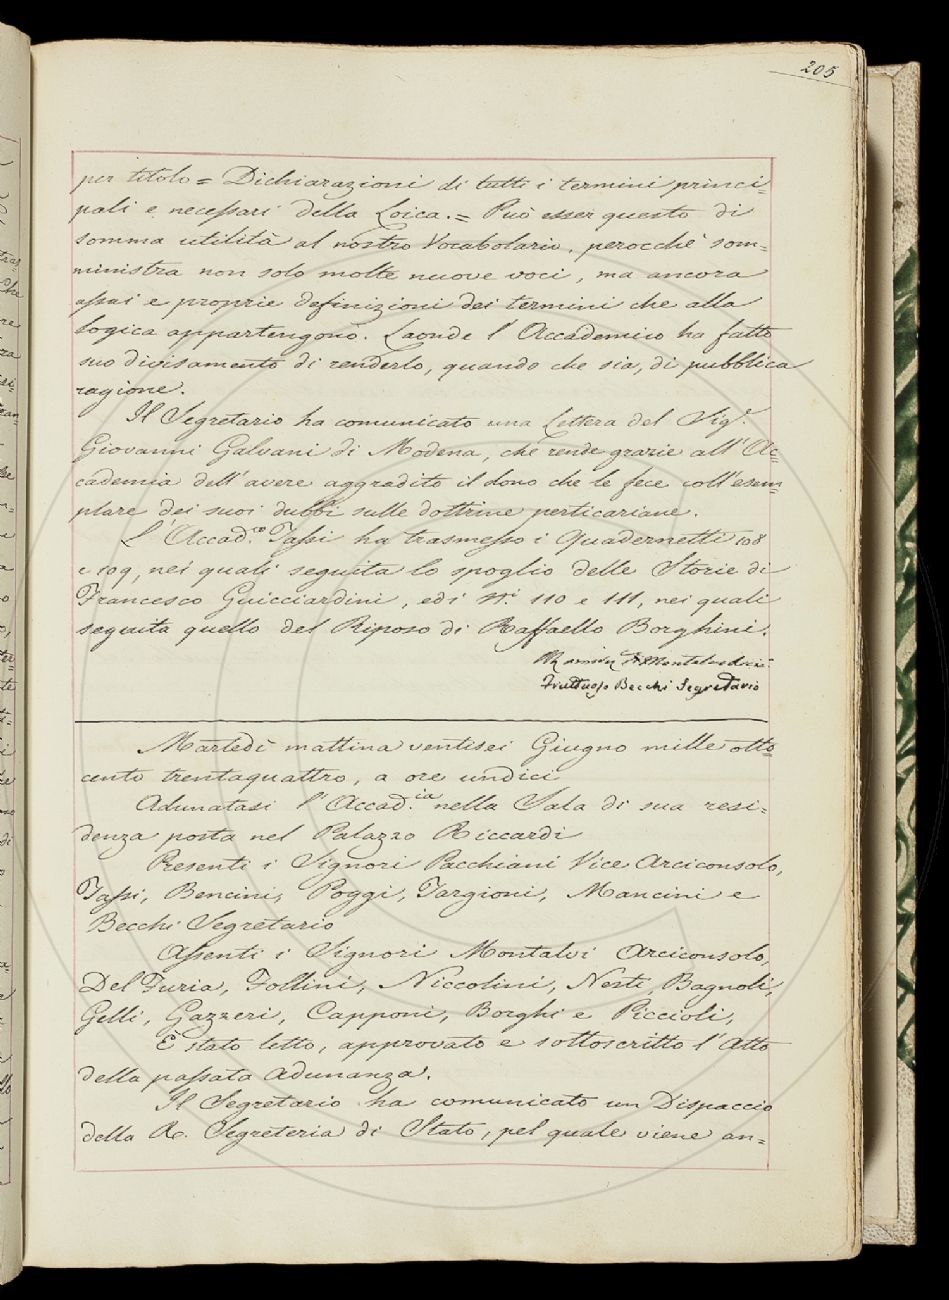 205
per titolo = Dichiarazioni di tutti i termini princi=
pali e necessari della Loica. = Può esser questo di
somma utilità al nostro Vocabolario, perocchè som=
ministra non solo molte nuove voci, ma ancora
assai e proprie definizioni dei termini che alla
logica appartengono. Laonde l'Accademico ha fatto
suo divisamento di renderlo, quando che sia, di pubblica
ragione.
Il Segretario ha comunicato una Lettera del Sigr.
Giovanni Galvani di Modena, che rende grazie all'Ac=
cademia dell'avere aggradito il dono che le fece coll'esem=
plare dei suoi dubbi sulle dottrine perticariane.
L'Accad.co Tassi ha trasmesso i Quadernetti 108
e 109, nei quali seguita lo spoglio delle Storie di
Francesco Guicciardini, ed i N.i 110 e 111, nei quali
seguita quello del Riposo di Raffaello Borghini.
Fruttuoso Becchi Segretario
Martedì mattina ventisei Giugno mille otto=
cento trentaquattro, a ore undici
Adunatasi l'Accad.ia nella Sala di sua resi=
denza posta nel Palazzo Riccardi
Presenti i Signori Pacchiani Vice Arciconsolo,
Tassi, Bencini, Poggi, Targioni, Mancini e
Becchi Segretario
Assenti i Signori Montalvi Arciconsolo,
Del Furia, Follini, Niccolini, Nesti, Bagnoli,
Gelli, Gazzeri, Capponi, Borghi e Piccioli,
È stato letto, approvato e sottoscritto l'Atto
della passata Adunanza.
Il Segretario ha comunicato un Dispaccio
della R. Segreteria di Stato, pel quale viene an=